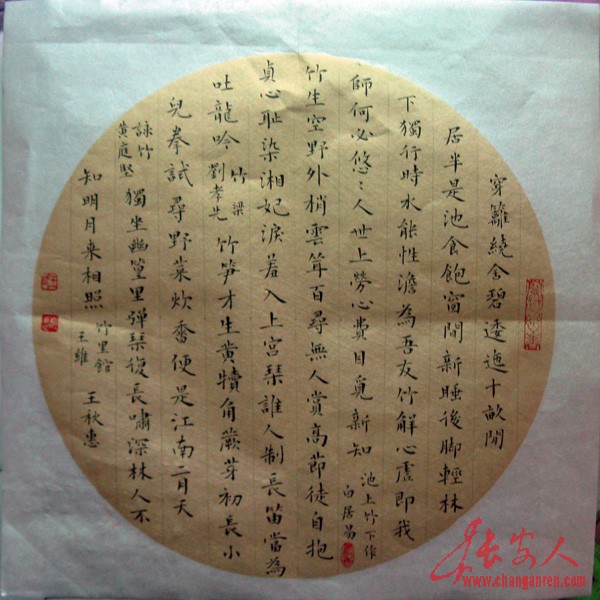 穿籬繞舍碧逶迤十畝閒
居半是池食飽窗間新睡後脚輕林
下獨行時水能性澹為吾友竹解心虛即我
師何必悠〻人世上勞心費目覓新知
池上竹下作
白居易
竹生空野外梢雲聳百尋無人賞高節徒自抱
貞心耻染湘妃淚羞入上宮琴誰人制長笛當為
吐龍吟
竹 梁
劉孝先
竹笋才生黃犢角蕨芽初長小
兒拳試尋野菜炊香便是江南二月天
詠竹
黃庭堅
獨坐幽篁里彈琴復長嘯深林人不
知明月来相照
竹里館
王維
王秋惠
長安人
www.changanren.com